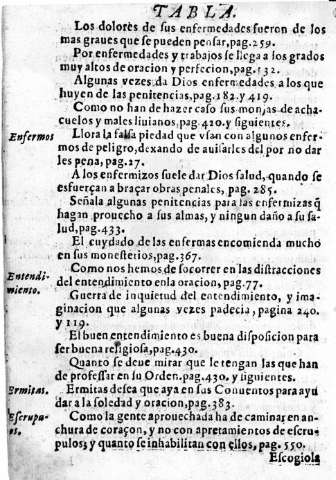 TABLA.
Los dolores de sus enfermedades fueron de los
mas graues que se pueden pensar, pag. 259.
Por enfermedades y trabajos se llega a los grados
muy altos de oracion y perfecion, pag. 132.
Algunas vezes da Dios enfermedades a los que
huyen de las penitencias, pag. 182. y 419.
Como no han de hazer caso sus monjas de acha-
cuelos y males liuianos, pag. 420. y siguientes.
Enfermos
Llora la falsa piedad que vsan con algunos enfer-
mos de peligro, dexando de auisarles del por no dar
les pena, pag. 27.
A los enfermizos suele dar Dios salud, quando se
esfuerçan a braçar obras penales, pag. 285.
Señala algunas penitencias para las enfermizas q̃
hagan prouecho a sus almas, y ningun daño a su sa-
lud, pag. 433.
El cuydado de las enfermas encomienda mucho
en sus monesterios, pag. 367.
Entendi-
miento.
Como nos hemos de socorrer en las distracciones
del entendimiento en la oracion, pag. 77.
Guerra de inquietud del entendimiento, y ima-
ginacion que algunas vezes padecia, pagina 240.
y 119.
El buen entendimiento es buena disposicion para
ser buena religiosa, pag. 430.
Quanto se deue mirar que le tengan las que han
de professar en su Orden. pag. 430. y siguientes.
Ermitas.
Ermitas desea que aya en sus Conuentos para ayu
dar a la soledad y oracion, pag. 383.
Escrupu-
os.
Como la gente aprouechada ha de caminar en an-
chura de coraçon, y no con apretamientos de escru-
pulos; y quanto se inhabilitan con ellos, pag. 550.
Escogiola